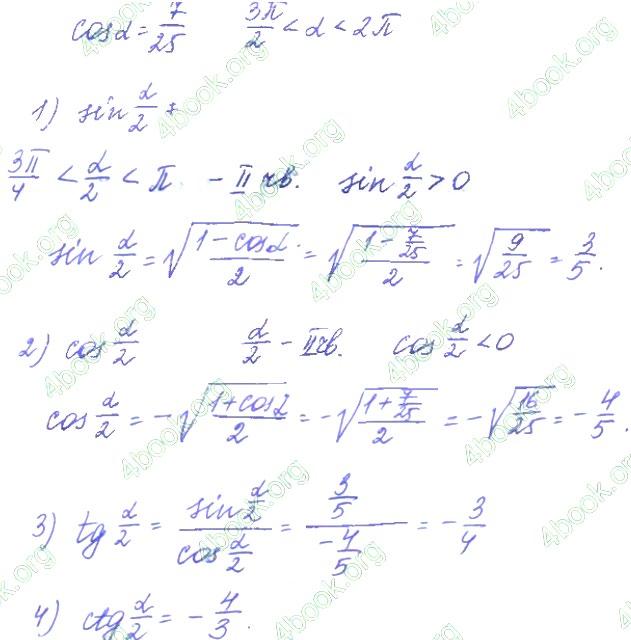 cosα = 7/25   3π/2 < α < 2π
1) sin α/2
3π/4 < α/2 < π - II чв. sin α/2 > 0
sin α/2 = √((1 - cosα)/2) = √((1 - 7/25)/2) = √(9/25) = 3/5.
2) cos α/2   α/2 - II чв. cos α/2 < 0
cos α/2 = -√((1 + cosα)/2) = -√((1 + 7/25)/2) = -√(16/25) = -4/5.
3) tg α/2 = (sin α/2)/(cos α/2) = (3/5)/(-4/5) = -3/4
4) ctg α/2 = -4/3.
4book.org